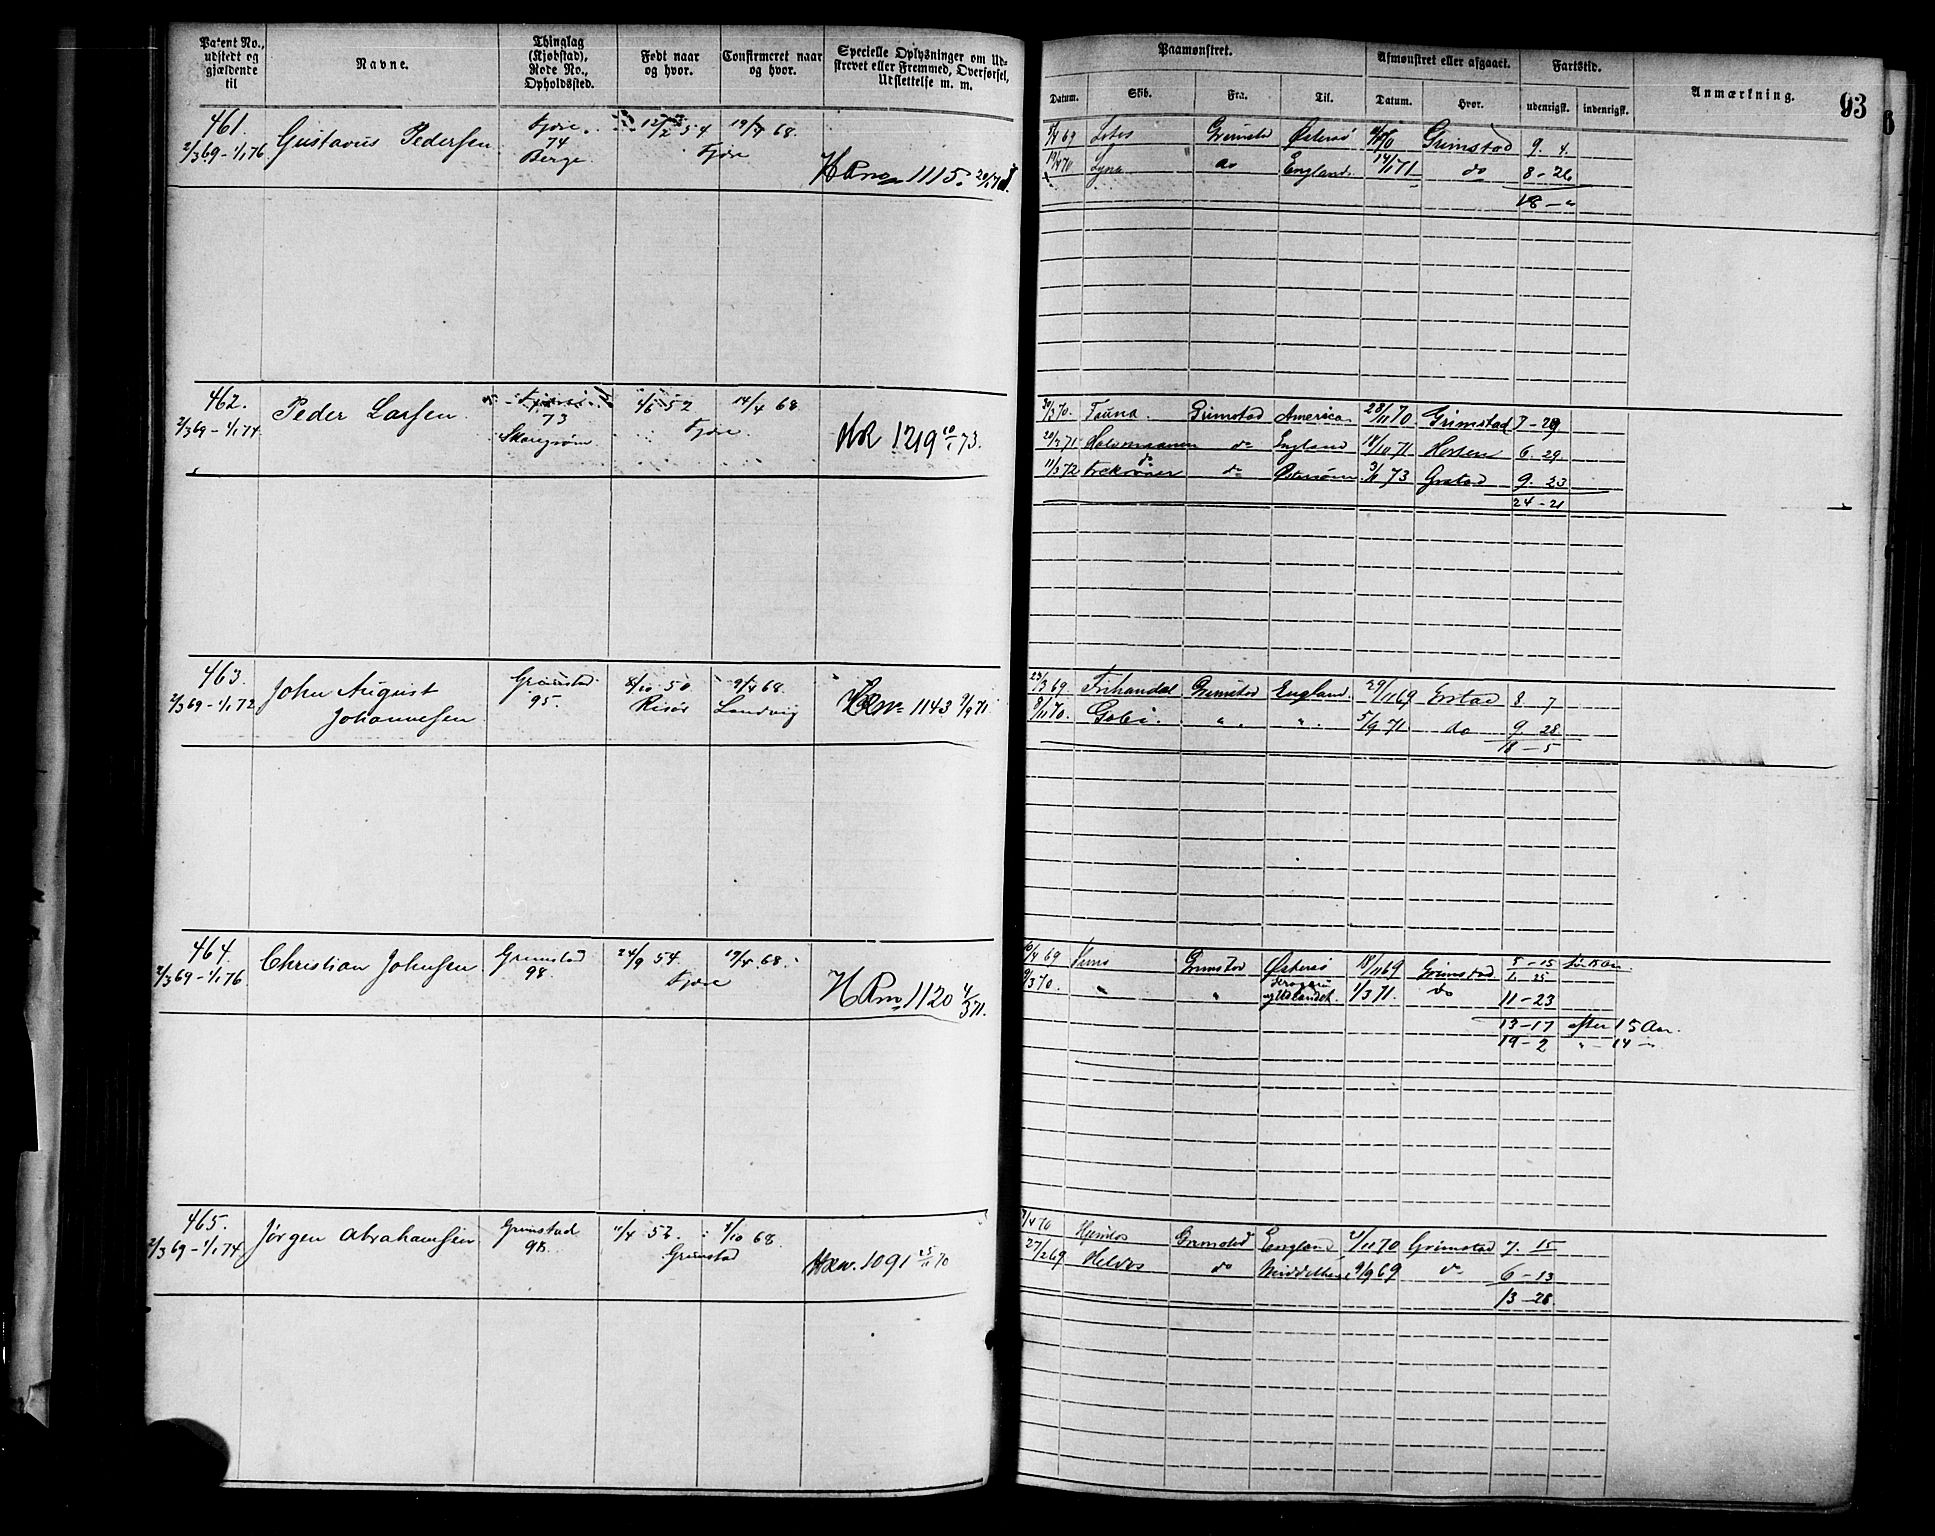 Patent No., udstedt og gjældende til
Navne.
Thinglag (Kjøbstad), Rode No., Opholdssted.
Født naar og hvor.
Confirmeret naar og hvor.
Specielle Oplysninger om Udskrevet eller Fremmed, Overførsel, Udslettelse m. m.
Paamønstret.
Datum.
Skib.
Fra.
Til.
Afmønstret eller afgaaet.
Datum.
Hvor.
Fartstid.
udenrigsk.
indenrigsk.
Anmærkning.
93
461.
2/3 69 - 1/1 76
Gustavus Pedersen
Fjære
74
Berge
12/2 54
19/4 68.
Fjære
1115.
69
Grimstad
Østersø
Grimstad
9. 4.
do
England.
14/1 71
do
8 - 26
18 - "
462.
2/3 69 - 1/1 74
Peder Larsen
73
1/6 52
14/4 68
Fjære
1219 10/1 73.
30/3 70.
Fauna.
Grimstad
America
23/11 70
Grimstad
7 - 29
do
England
18/10 71
6. 29
11/3 72
do
3/1 73
Grstad
9. 23
24 - 21
463.
2/3 69 - 1/1 72
John August
Johannesen
Grimstad
95.
8/10 50
Risør
9/4 68.
Landvig
1143 9/9 71
23/3 69
Frihandel
Grimstad
England
29/11 69
8 7
8/11 70.
Gobi.
" .
" .
5/9 71
do
9. 28
18 - 5
464.
2/3 69 - 1/1 76
Christian Johnsen
Grimstad
98.
24/9 54.
19/4 68.
Fjære
1120 4/3 71.
10/4 69
Grimstad
Østersø
18/11 69
Grimstad
5 - 15
1. 25
9/3 70.
"
"
1/3 71.
do
11 - 23
13 - 17
efter 15 Aar.
19 - 2
" - 14 -
465.
2/3 69 - 1/1 74
Jørgen Abrahamsen
Grimstad
98.
11/4 52
1/10 68.
Grimstad
1091 25/11 70
4 70
Grimstad
England
Grimstad
7. 15
27/2 69
do
9/9 69
do
6 - 13
13 - 28